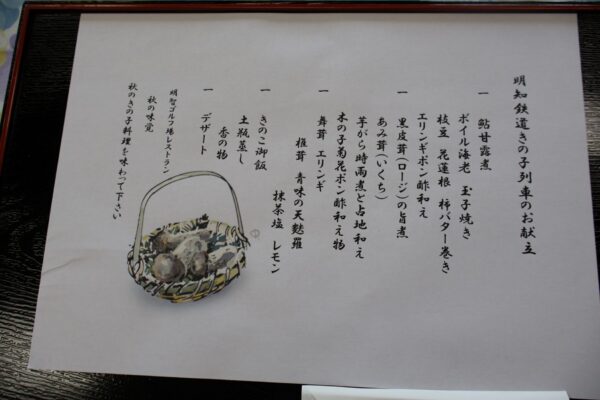 明知鉄道きの子列車のお献立
一 鮎甘露煮
ボイル海老 玉子焼き
枝豆 花蓮根 柿バター巻き
エリンギポン酢和え
一 黒皮茸(ロージ)の旨煮
あみ茸(いくち)
芋がら時雨煮と占地和え
木の子菊花ポン酢和え物
一 舞茸 エリンギ
椎茸 青味の天麩羅
抹茶塩 レモン
一 きのこ御飯
土瓶蒸し
香の物
一 デザート
明智ゴルフ場レストラン
秋の味覚
秋のきの子料理を味わって下さい